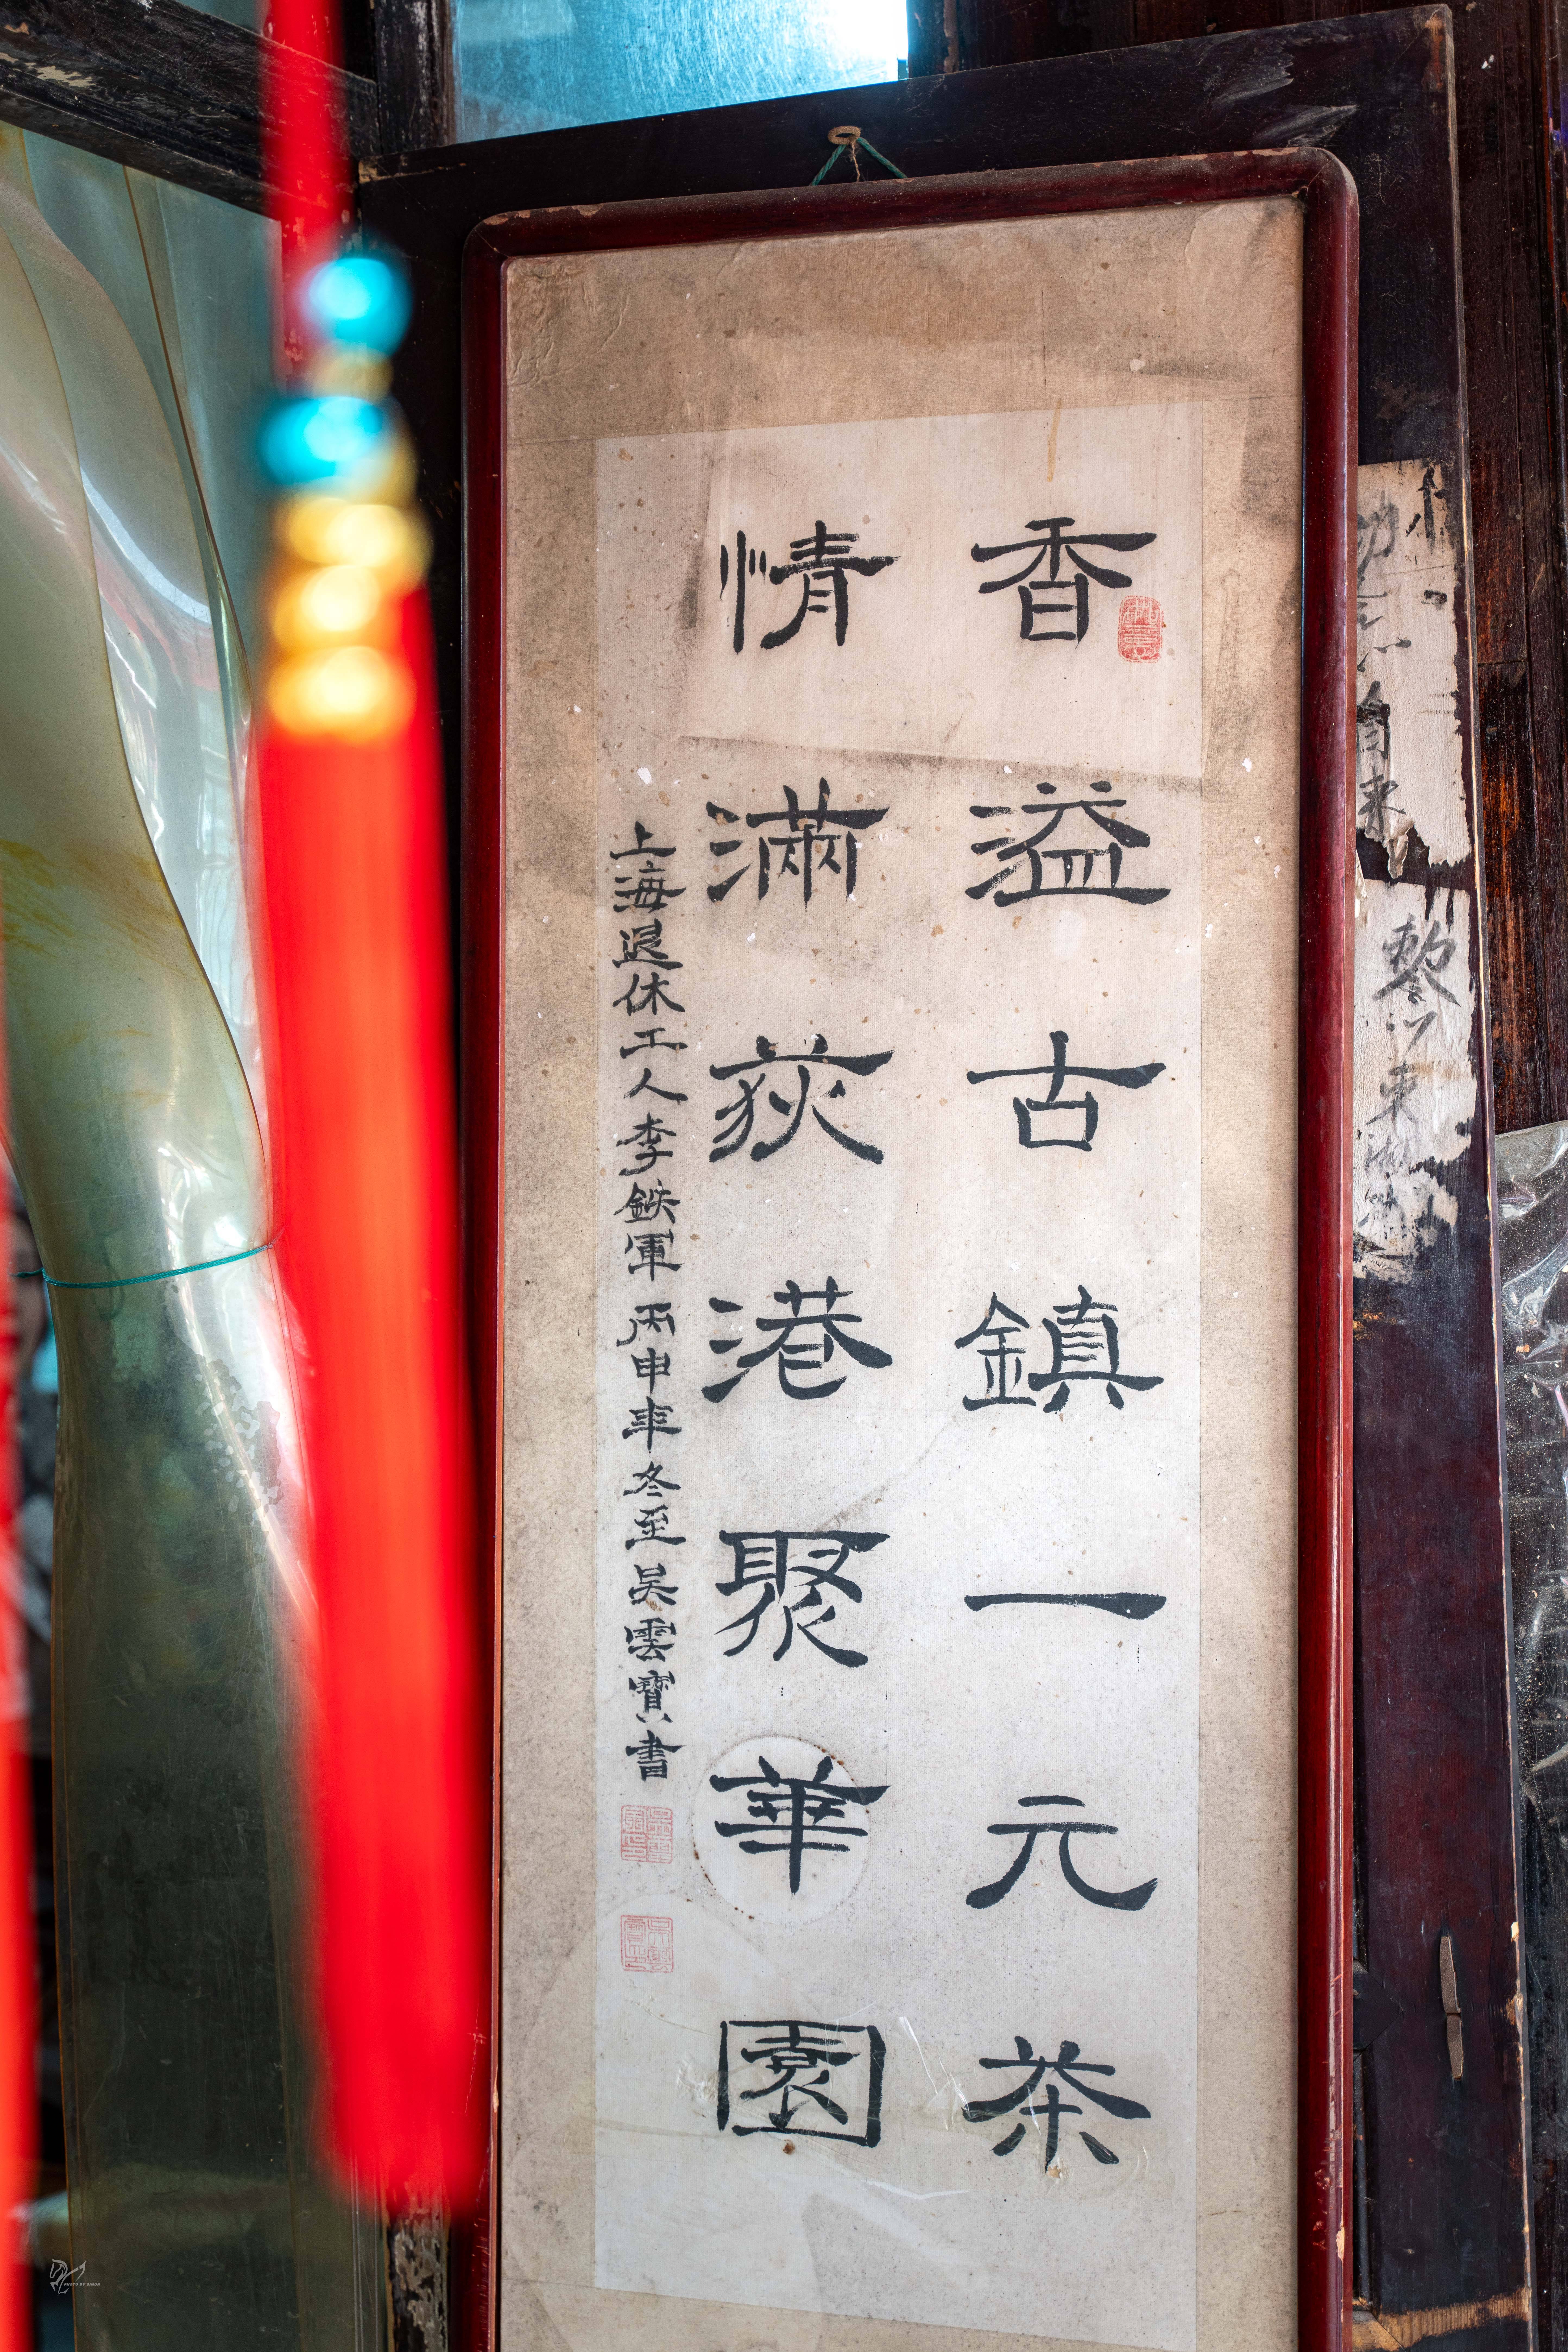 香溢古鎮一元茶
情滿荻港聚華園
上海退休工人李鐵軍 丙申年冬至吳雲寶書
自来